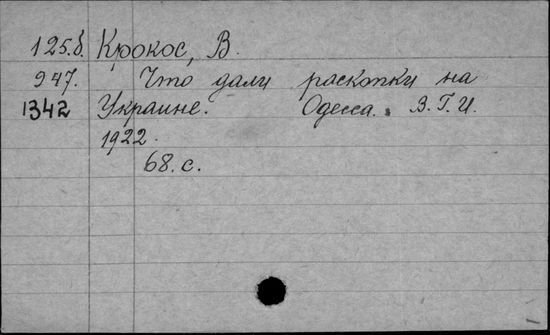 125б. Крокос, В.
947. Что дали раскопки на
1342 Украине. Одесса. В.Г.И.
1922.
68.с.